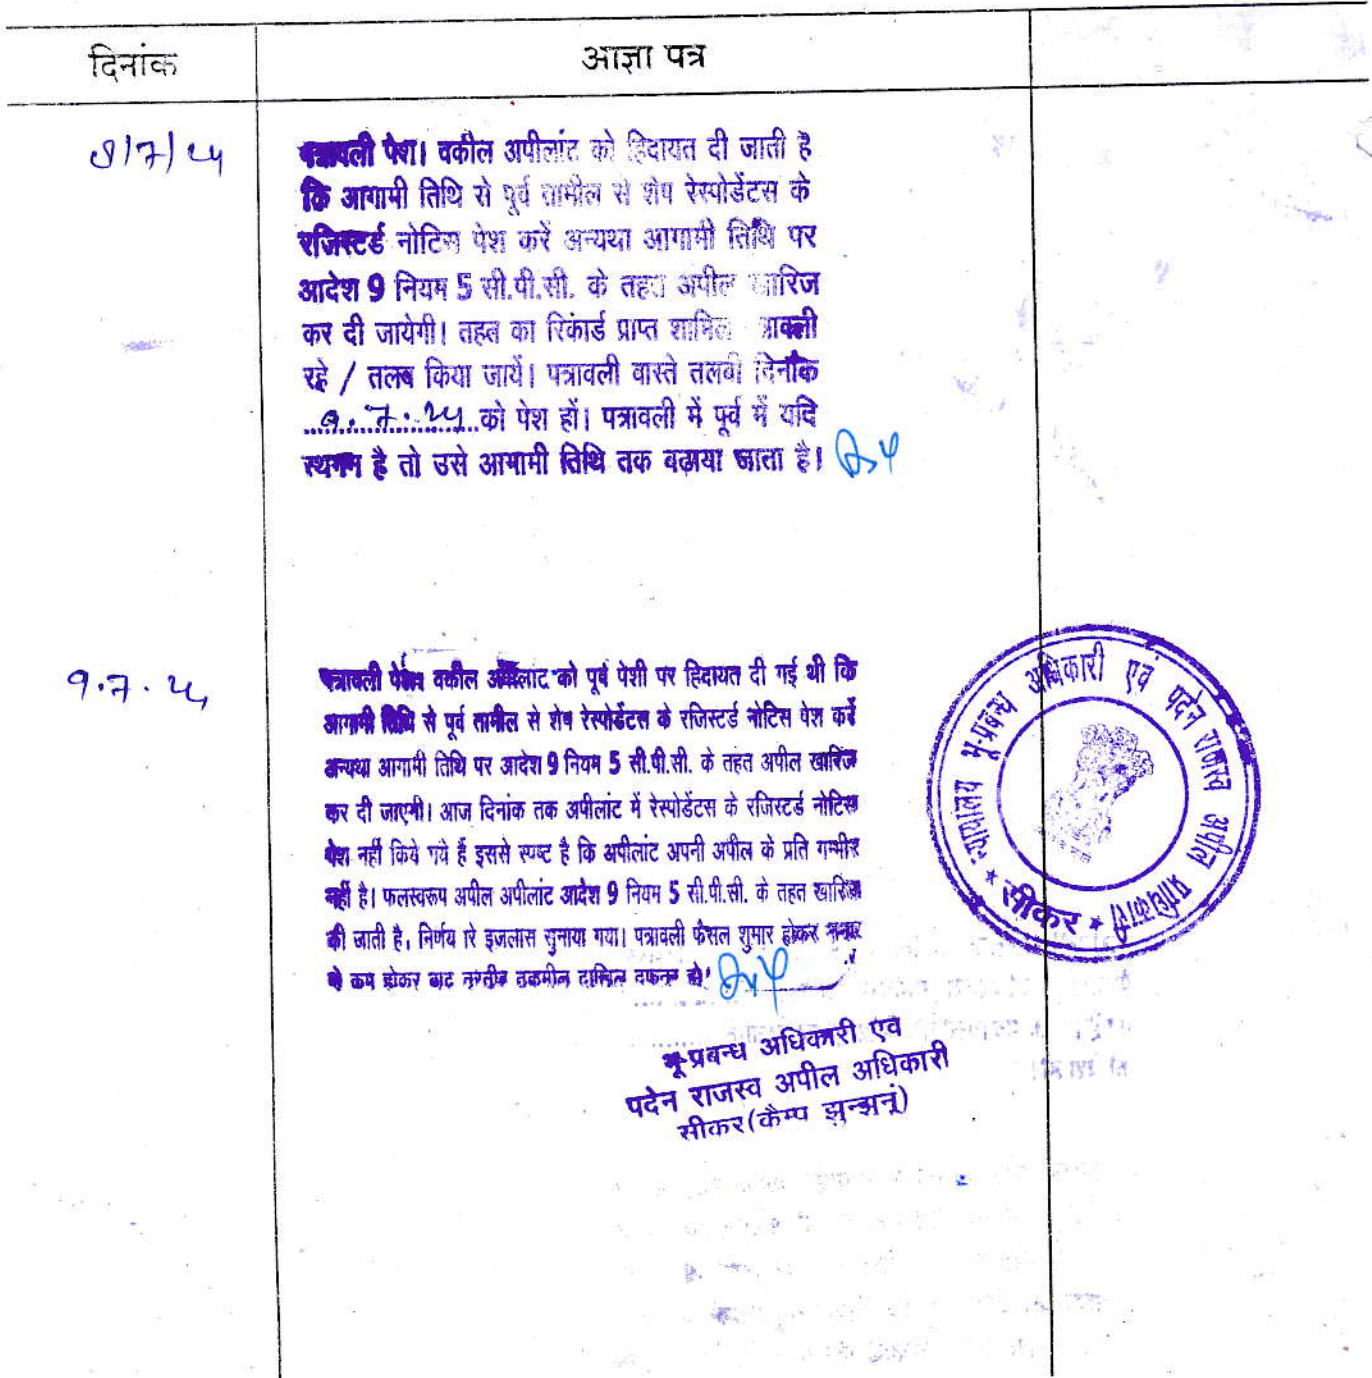 दिनांक
आज्ञा पत्र
8/7/24
पत्रावली पेश। वकील अपीलांट को हिदायत दी जाती है
कि आगामी तिथि से पूर्व तामील से शेष रेस्पोडेंटस के
रजिस्टर्ड नोटिस पेश करें अन्यथा आगामी तिथि पर
आदेश 9 नियम 5 सी.पी.सी. के तहत अपील खारिज
कर दी जायेगी। तहत का रिकार्ड प्राप्त शामिल पत्रावली
रहे / तलब किया जायें। पत्रावली वास्ते तलबी दिनाँक
9.7.24 को पेश हों। पत्रावली में पूर्व में यदि
स्थगन है तो उसे आगामी तिथि तक बढ़ाया जाता है।
9.7.24
पत्रावली पेश। वकील अपीलांट को पूर्व पेशी पर हिदायत दी गई थी कि
आगामी तिथि से पूर्व तामील से शेष रेस्पोर्डेटस के रजिस्टर्ड नोटिस पेश करें
अन्यथा आगामी तिथि पर आदेश 9 नियम 5 सी.पी.सी. के तहत अपील खारिज
कर दी जाएगी। आज दिनांक तक अपीलांट में रेस्पोडेंटस के रजिस्टर्ड नोटिस
पेश नहीं किये गये हैं इससे स्पष्ट है कि अपीलांट अपनी अपील के प्रति गम्भीर
नहीं है। फलस्वरूप अपील अपीलांट आदेश 9 नियम 5 सी.पी.सी. के तहत खारिज
की जाती है, निर्णय सरे इजलास सुनाया गया। पत्रावली फैसल शुमार होकर नम्बर
से कम होकर बाद तरतीब तकमील दाखिल दफ्तर हो।
भू-प्रबन्ध अधिकारी एव
पदेन राजस्व अपील अधिकारी
सीकर(कैम्प झुन्झनूं)
न्यायालय भू-प्रबन्ध अधिकारी एवं पदेन राजस्व अपील प्राधिकारी
* सीकर *